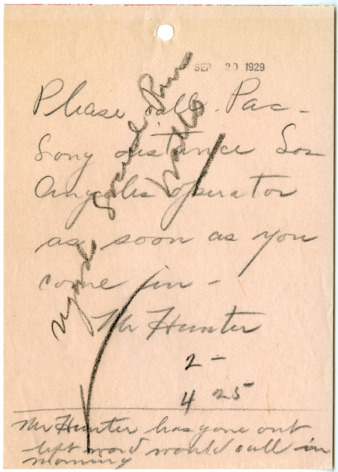 SEP 20 1929
Please call Pac-
Long distance Los
Angeles operator
as soon as you
come in -
Mr Hunter
2 -
4 25
Mr Hunter has gone out
left word would call in
morning